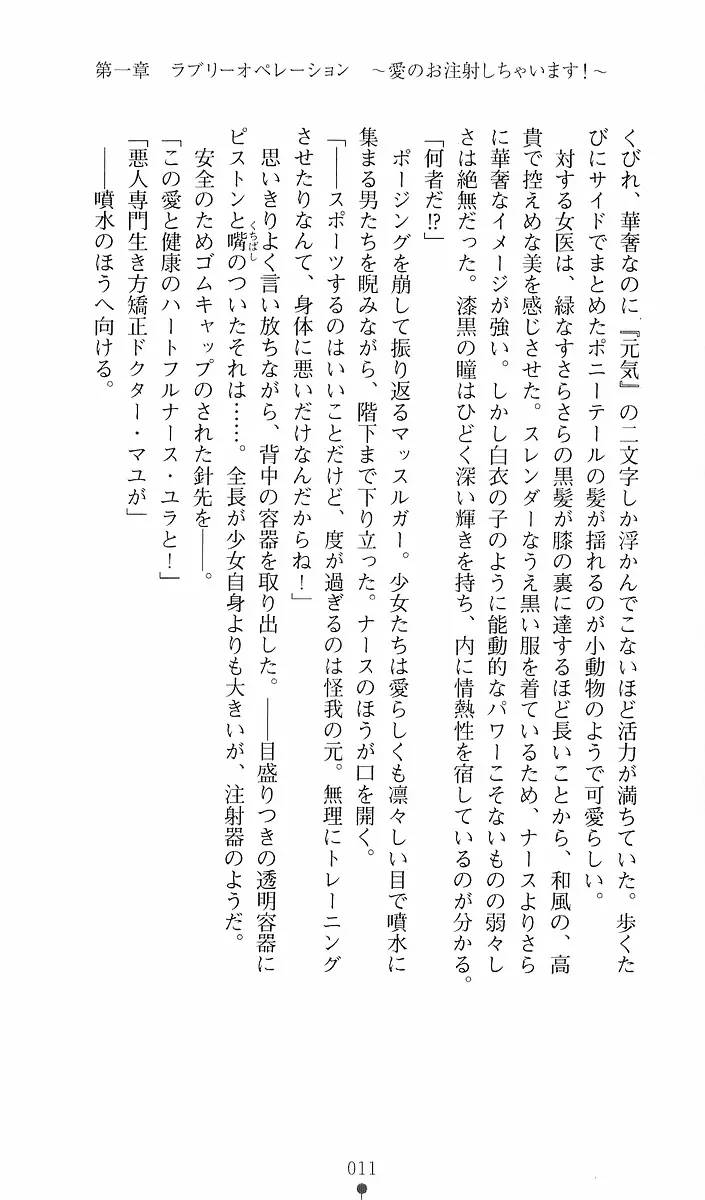 第一章　ラブリーオペレーション　～愛のお注射しちゃいます！～
くびれ、華奢なのに『元気』の二文字しか浮かんでこないほど活力が満ちていた。歩くた
びにサイドでまとめたポニーテールの髪が揺れるのが小動物のようで可愛らしい。
　対する女医は、緑なすさらさらの黒髪が膝の裏に達するほど長いことから、和風の、高
貴で控えめな美を感じさせた。スレンダーなうえ黒い服を着ているため、ナースよりさら
に華奢なイメージが強い。しかし白衣の子のように能動的なパワーこそないものの弱々し
さは絶無だった。漆黒の瞳はひどく深い輝きを持ち、内に情熱性を宿しているのが分かる。
「何者だ!?」
　ポージングを崩して振り返るマッスルガー。少女たちは愛らしくも凛々しい目で噴水に
集まる男たちを睨みながら、階下まで下り立った。ナースのほうが口を開く。
「――スポーツするのはいいことだけど、度が過ぎるのは怪我の元。無理にトレーニング
させたりなんて、身体に悪いだけなんだからね！」
　思いきりよく言い放ちながら、背中の容器を取り出した。――目盛りつきの透明容器に
ピストンと嘴のついたそれは……。全長が少女自身よりも大きいが、注射器のようだ。
くちばし
　安全のためゴムキャップのされた針先を――。
「この愛と健康のハートフルナース・ユラと！」
「悪人専門生き方矯正ドクター・マユが」
　――噴水のほうへ向ける。
011